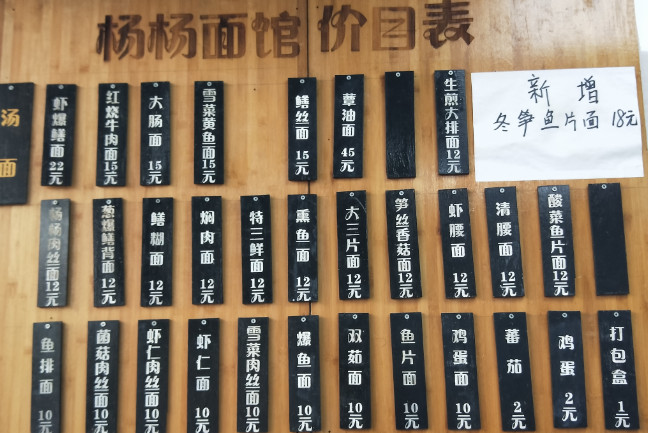 杨杨面馆 价目表
汤面
虾爆鳝面 22元
红烧牛肉面 15元
大肠面 15元
雪菜黄鱼面 15元
鳝丝面 15元
蕈油面 45元
生煎大排面 12元
新增
冬笋鱼片面 18元
杨杨肉丝面 12元
葱爆鳝背面 12元
鳝糊面 12元
焖肉面 12元
特三鲜面 12元
熏鱼面 12元
大三片面 12元
笋丝香菇面 12元
虾腰面 12元
清腰面 12元
酸菜鱼片面 12元
鱼排面 10元
菌菇肉丝面 10元
虾仁肉丝面 10元
虾仁面 10元
雪菜肉丝面 10元
爆鱼面 10元
双茄面 10元
鱼片面 10元
鸡蛋面 10元
蕃茄 2元
鸡蛋 2元
打包盒 1元